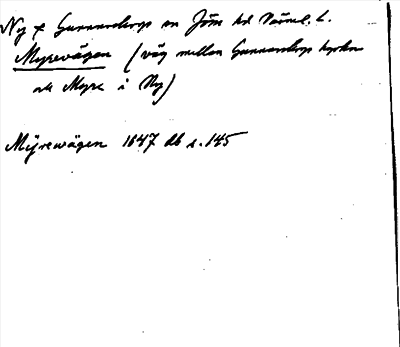 Ny o Gunnarskogs sn Jösse hd Värml. l.
Myrevägen (väg mellan Gunnarskogs kyrka
och Myre i Ny)
Mÿrewägen 1647 db s. 145